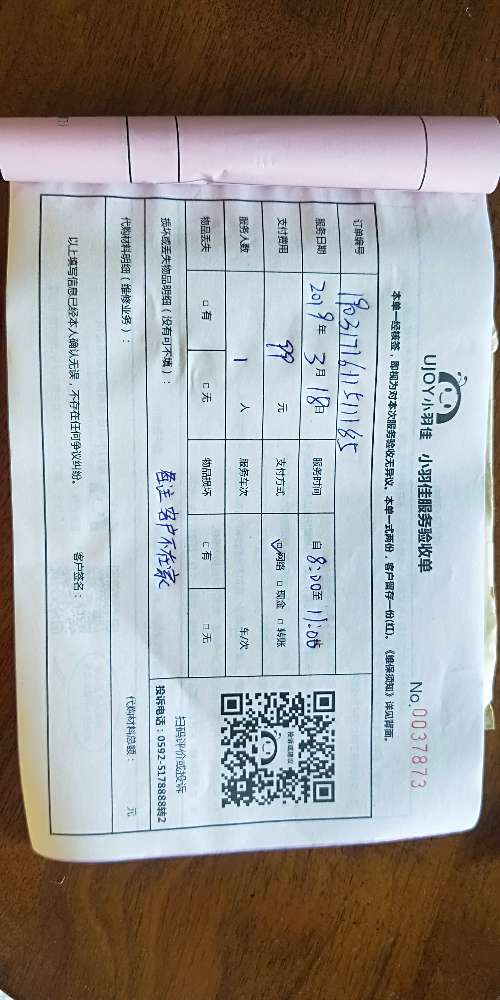 UJOY小羽佳 小羽佳服务验收单
No.0037873
本单一经核签，即视为对本次服务验收无异议。本单一式两份，客户留存一份(红)。《维保须知》详见背面。
订单编号
服务日期 2019年3月18日 服务时间 自8:00至11:00
支付费用 99 元 支付方式 ☑网络 □现金 □转账
服务人数 1 人 服务车次 车/次
物品丢失 □有 □无 物品损坏 □有 □无
损坏或丢失物品明细（没有可不填）：
备注 客户不在家
投诉或建议
扫码评价或投诉
投诉电话：0592-5178888转2
代购材料明细（维修业务）： 代购材料总额： 元
以上填写信息已经本人确认无误，不存在任何争议纠纷。 客户签名：